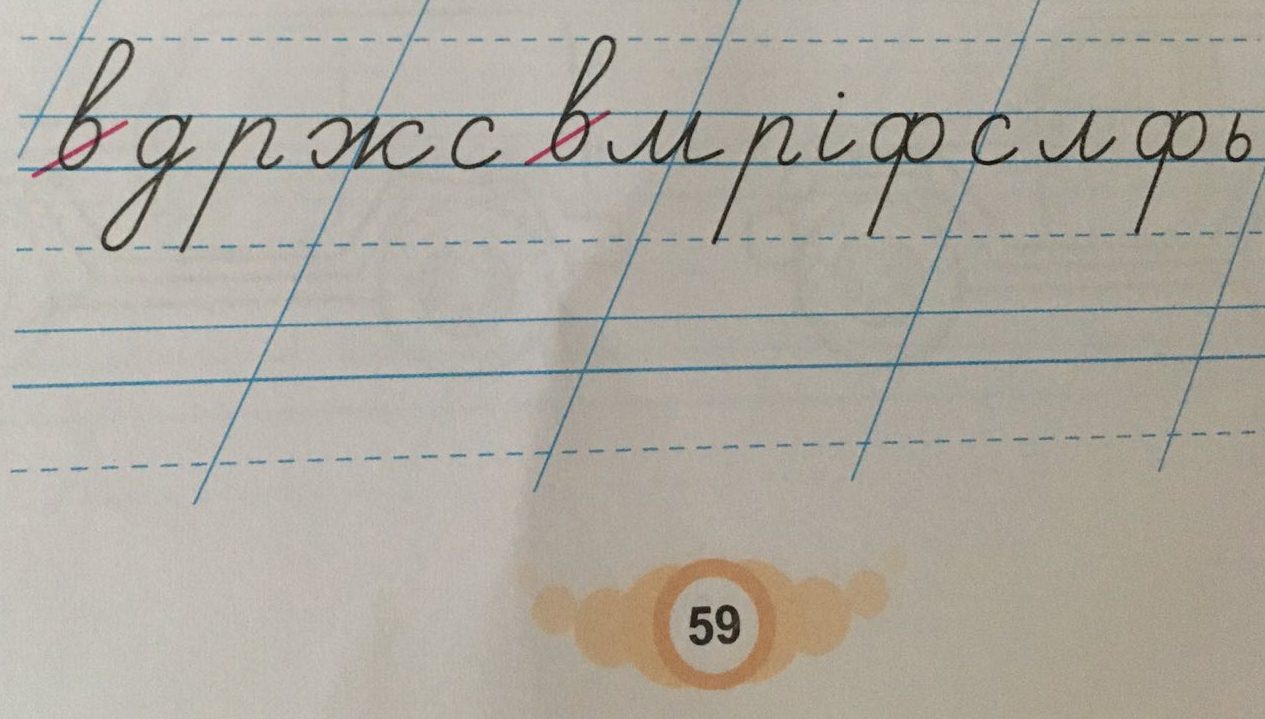 в д р ж с с в м р і ф с л ф ь
59